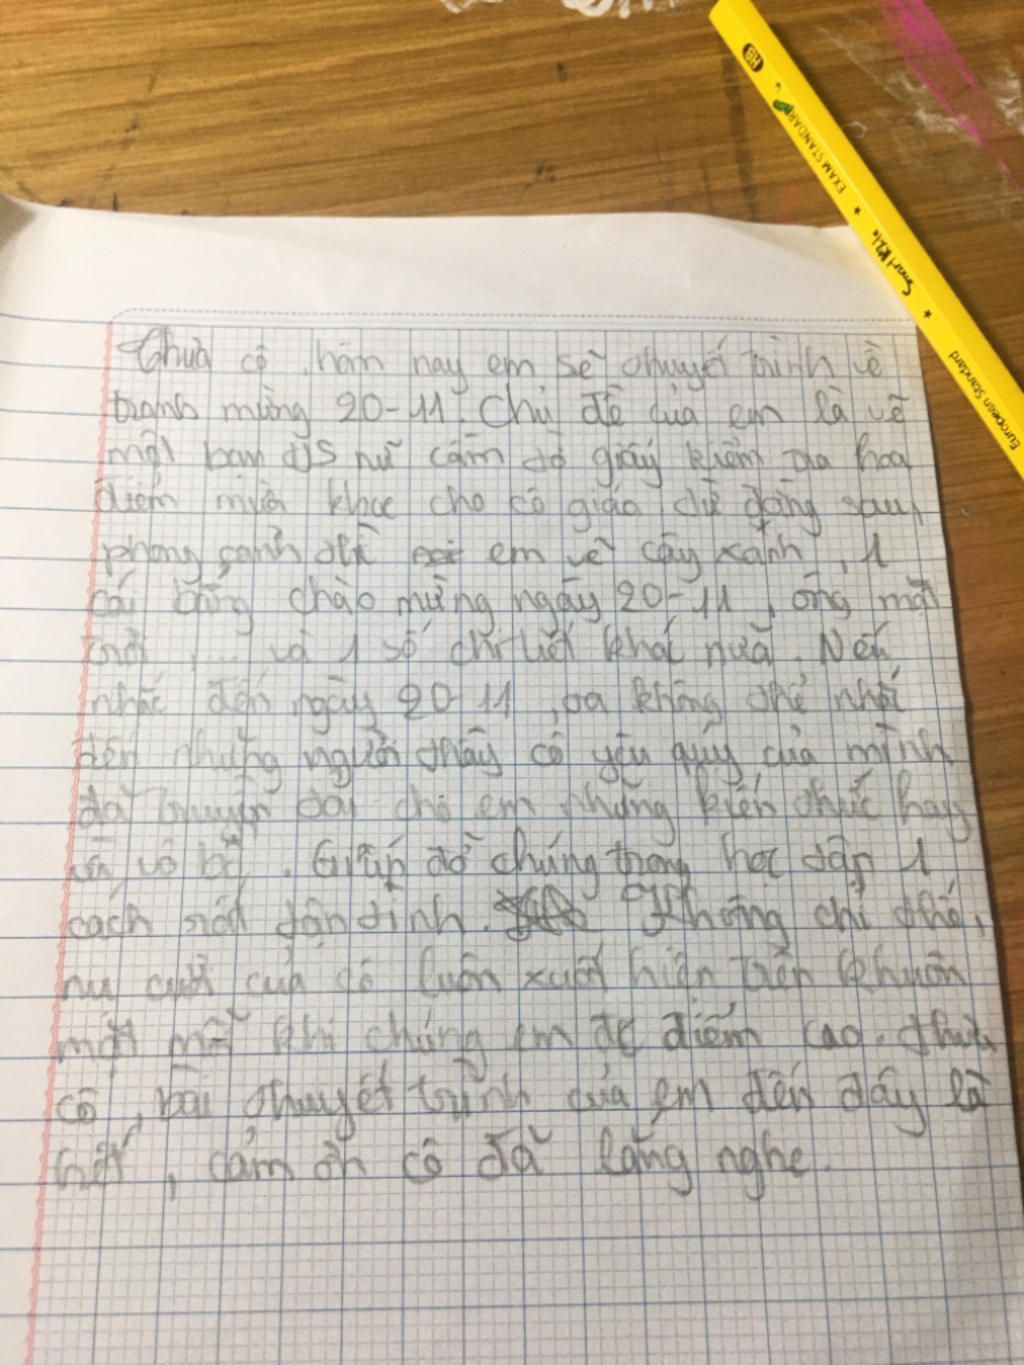 Thưa cô, hôm nay em sẽ thuyết trình về
tranh mừng 20-11. Chủ đề của em là vẽ
một bạn HS nữ cầm tờ giấy kiểm tra hoa
điểm mười khoe cho cô giáo, đứ đằng sau,
phong cảnh thì em vẽ cây xanh, 1
cái bảng chào mừng ngày 20-11, ông mặt
trời, ... và 1 số chi tiết khác nữa. Nến
nhắc đến ngày 20-11, ta không thể nhắc
đến những người thầy cô yêu quý của mình
đã truyền đạt cho em những kiến thức hay
và bổ. Giúp đỡ chúng trong học tập 1
cách rất tận tình. Không chỉ thế,
nụ cười của cô luôn xuất hiện trên khuôn
mặt mỗi khi chúng em đc điểm cao. Thưa
cô, bài thuyết trình của em đến đây là
hết, cảm ơn cô đã lắng nghe.
HB
EXAM STANDARD
SmartKids
European Standard